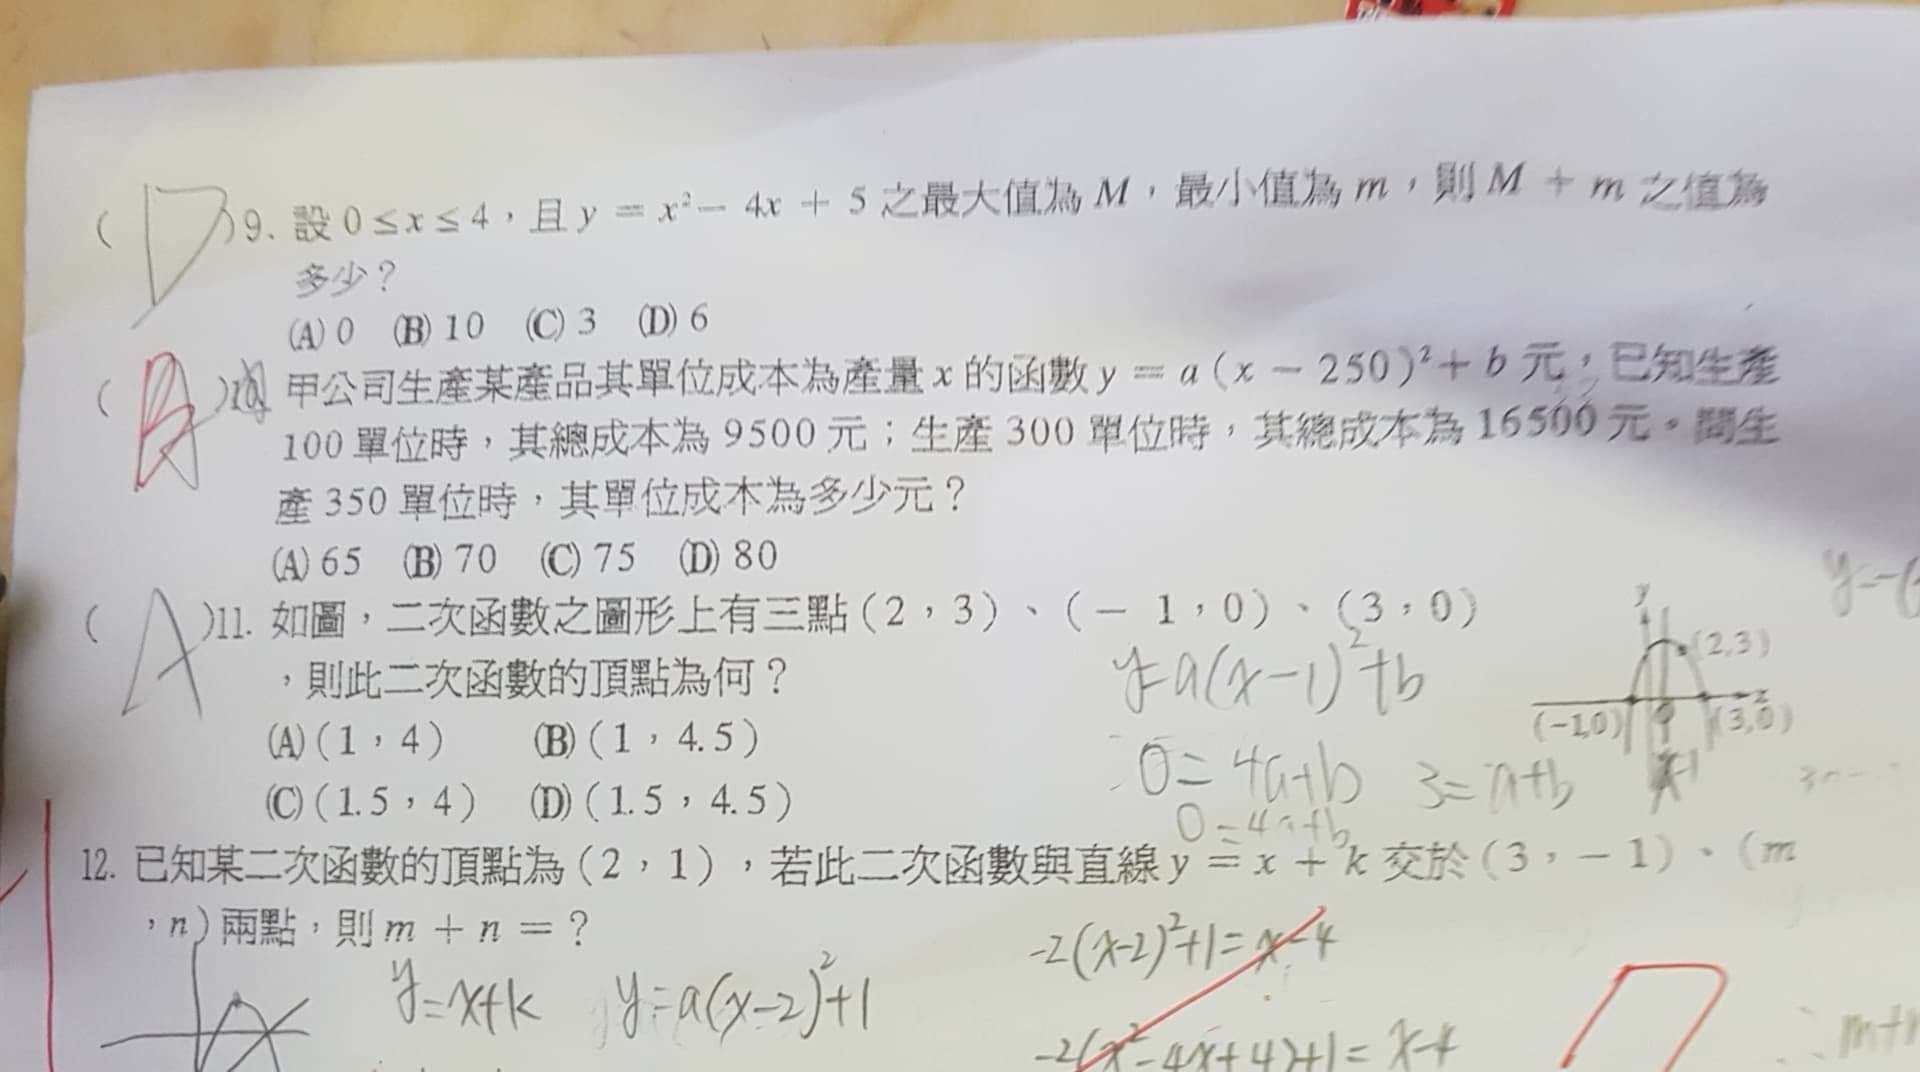 ( D )9. 設 0 ≤ x ≤ 4，且 y = x² − 4x + 5 之最大值為 M，最小值為 m，則 M + m 之值為
多少？
(A) 0 (B) 10 (C) 3 (D) 6
( ) 甲公司生產某產品其單位成本為產量 x 的函數 y = a (x − 250)² + b 元，已知生產
100 單位時，其總成本為 9500 元；生產 300 單位時，其總成本為 16500 元。問生
產 350 單位時，其單位成本為多少元？
(A) 65 (B) 70 (C) 75 (D) 80
( A )11. 如圖，二次函數之圖形上有三點 (2，3)、(− 1，0)、(3，0)
，則此二次函數的頂點為何？
(A) (1，4) (B) (1，4.5)
(C) (1.5，4) (D) (1.5，4.5)
y=a(x-1)²+b
0=4a+b 3=a+b
0=4a+b
y
(2,3)
(-1,0) (3,0)
x=1
12. 已知某二次函數的頂點為 (2，1)，若此二次函數與直線 y = x + k 交於 (3，− 1)、(m
，n) 兩點，則 m + n = ?
y=x+k y=a(x-2)²+1
-2(x-2)²+1=x-4
-2(x²-4x+4)+1=x-4